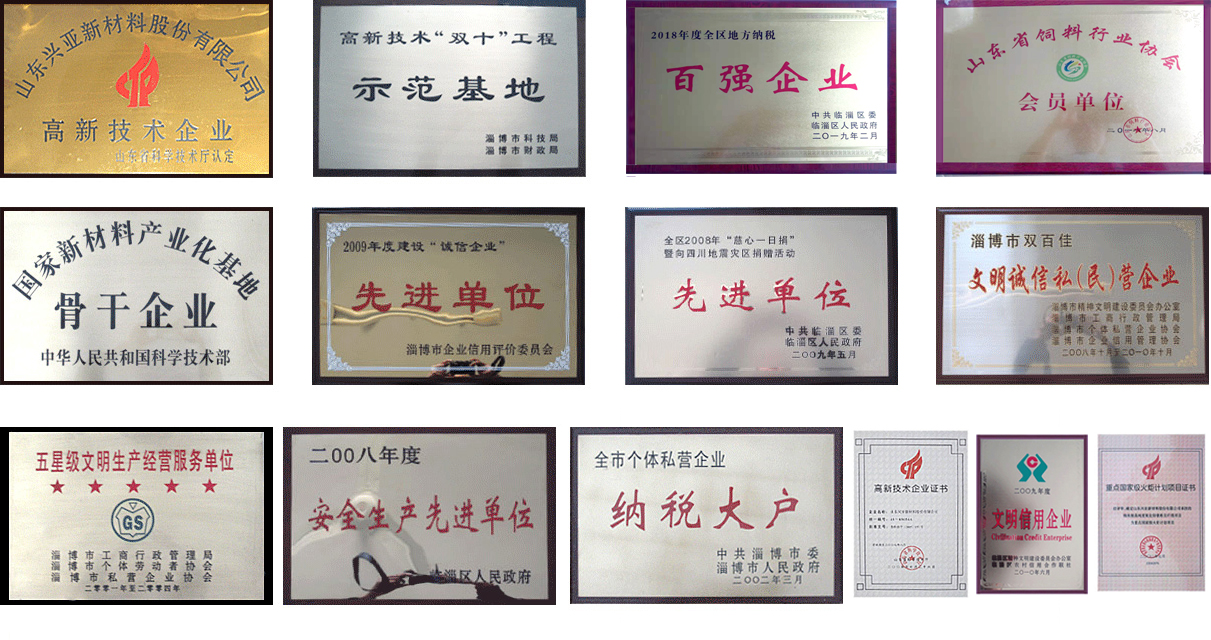 山东兴亚新材料股份有限公司
高新技术企业
山东省科学技术厅认定
高新技术“双十”工程
示范基地
淄博市科技局
淄博市财政局
2018年度全区地方纳税
百强企业
中共临淄区委
临淄区人民政府
二〇一九年二月
山东省饲料行业协会
会员单位
国家新材料产业化基地
骨干企业
中华人民共和国科学技术部
2009年度建设“诚信企业”
先进单位
淄博市企业信用评价委员会
全区2008年“慈心一日捐”
暨向四川地震灾区捐赠活动
先进单位
中共临淄区委
临淄区人民政府
二〇〇九年五月
淄博市双百佳
文明诚信私(民)营企业
淄博市精神文明建设委员会办公室
淄博市工商行政管理局
淄博市个体私营企业协会
淄博市企业信用管理协会
二〇〇八年十月至二〇一〇年十月
五星级文明生产经营服务单位
GS
淄博市工商行政管理局
淄博市个体劳动者协会
淄博市私营企业协会
二零零一年至二零零四年
二00八年度
安全生产先进单位
临淄区人民政府
全市个体私营企业
纳税大户
中共淄博市委
淄博市人民政府
二〇〇二年三月
高新技术企业证书
二〇〇九年度
文明信用企业
Credit Enterprise
二〇一〇年六月
重点国家级火炬计划项目证书